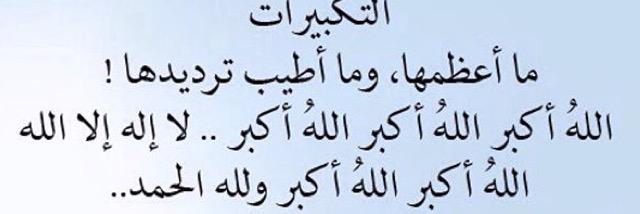 التكبيرات
ما أعظمها، وما أطيب ترديدها !
اللهُ أكبر اللهُ أكبر اللهُ أكبر .. لا إله إلا الله
اللهُ أكبر اللهُ أكبر ولله الحمد..